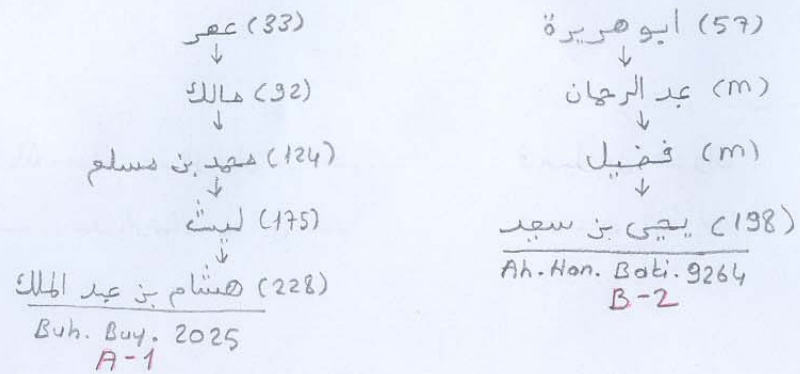 عمر (33)
↓
مالك (92)
↓
محمد بن مسلم (124)
↓
ليث (175)
↓
هشام بن عبد الملك (228)
Buh. Buy. 2025
A-1
ابو هريرة (57)
↓
عبد الرحمان (m)
↓
فضيل (m)
↓
يحيى بن سعيد (198)
Ah. Han. Baki. 9264
B-2